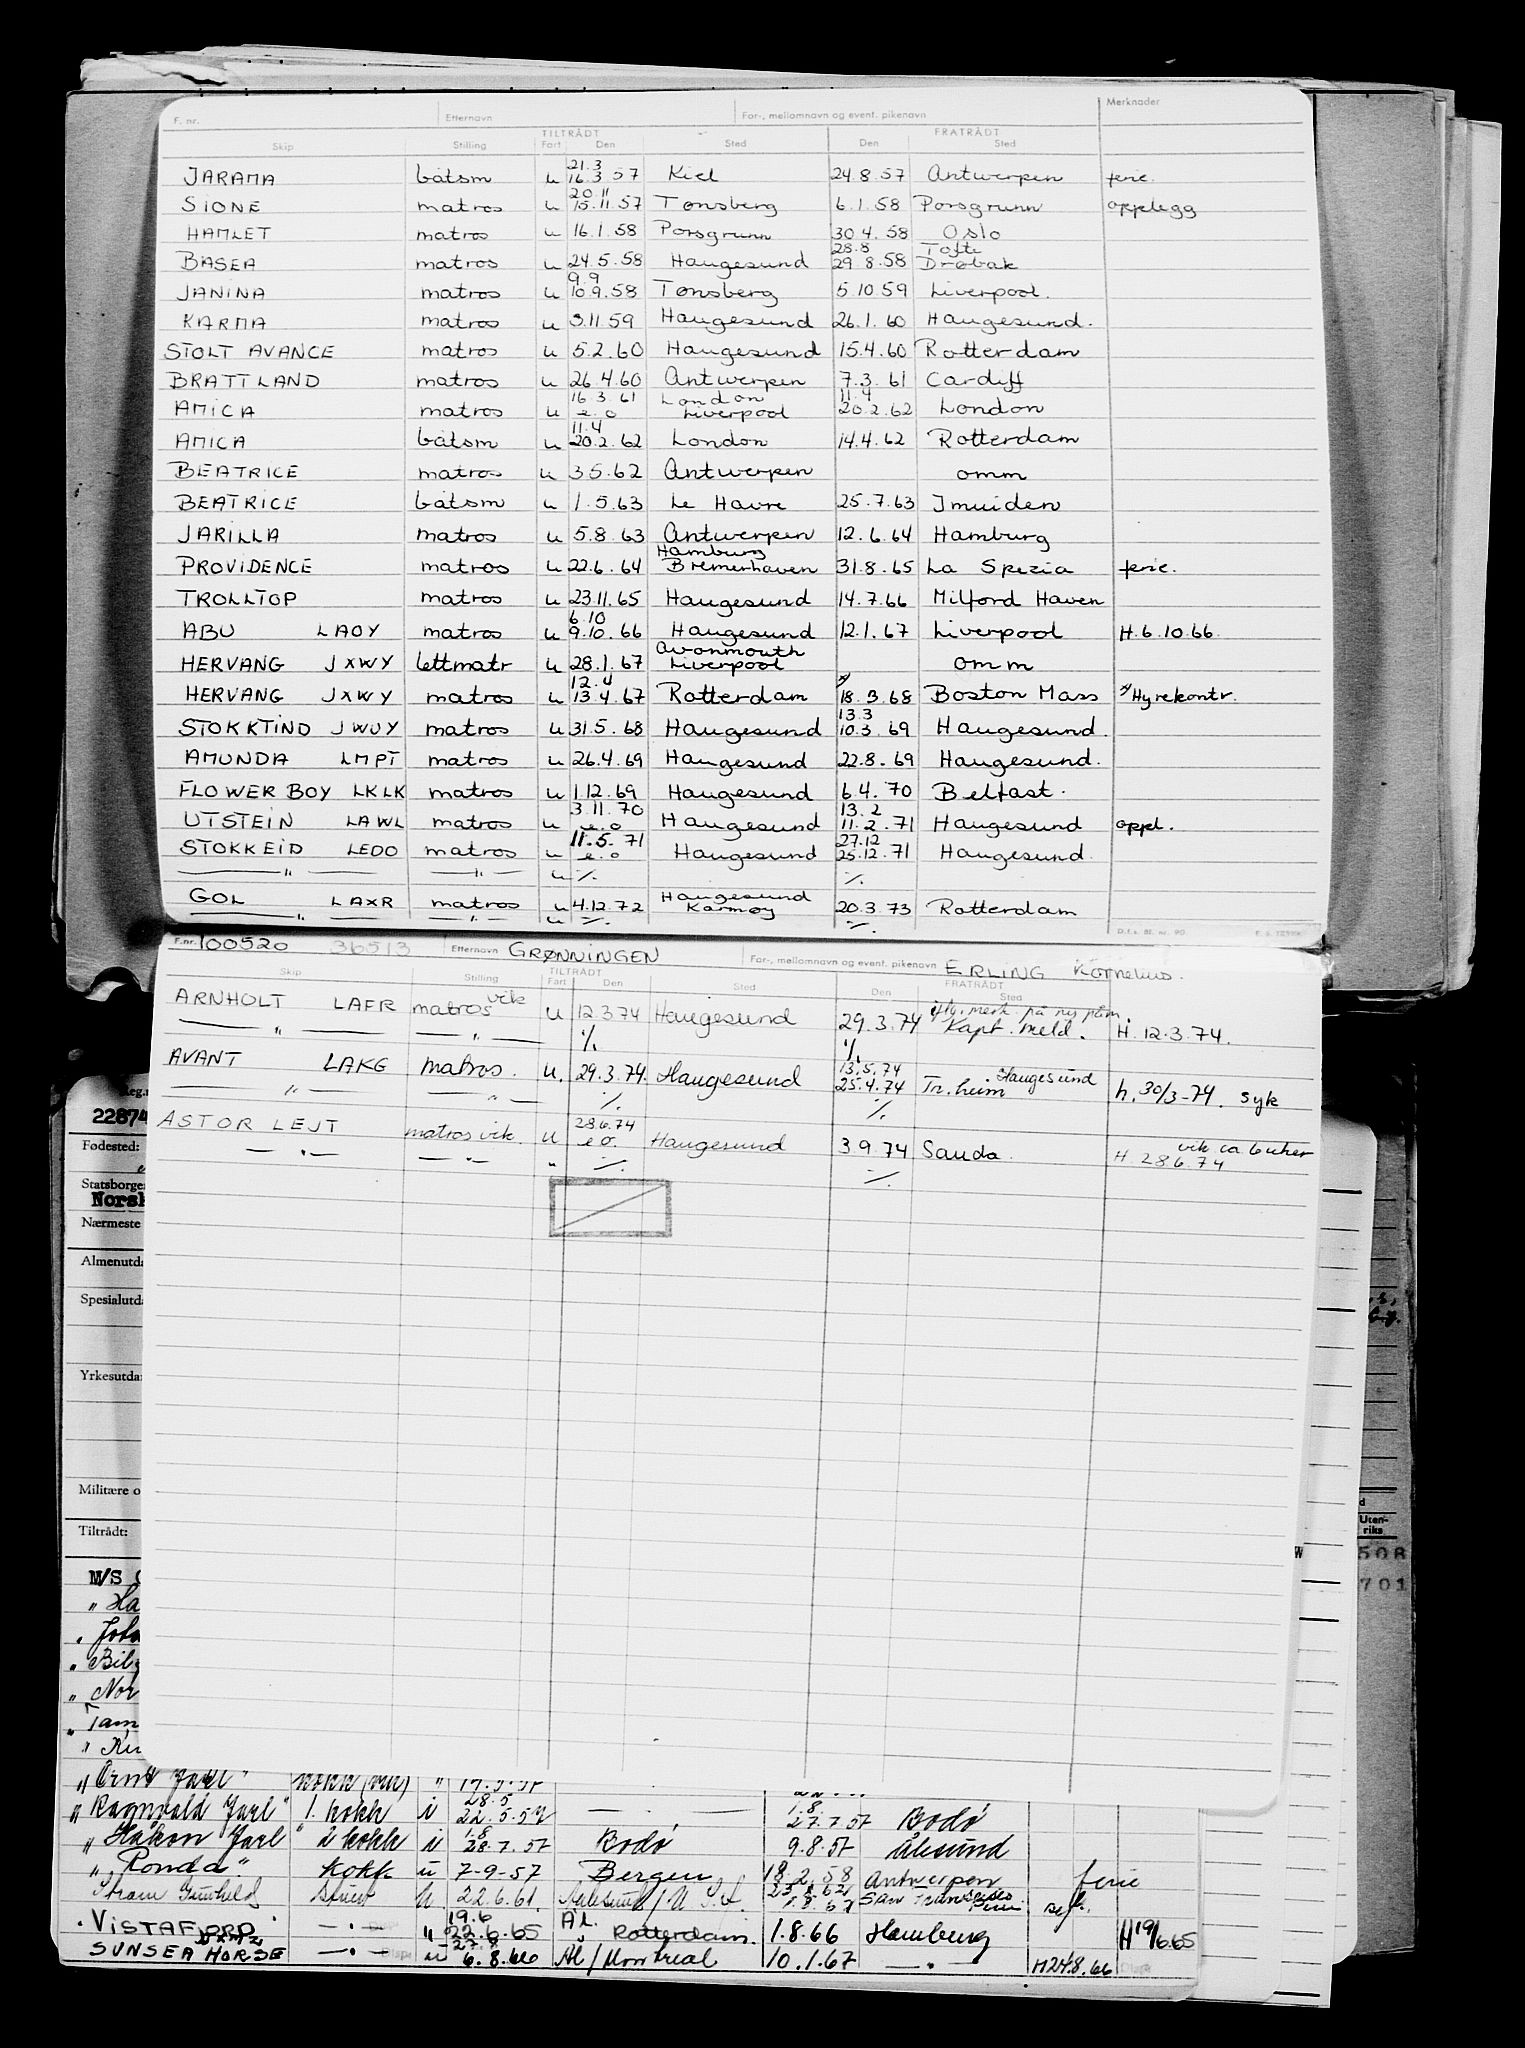 F. nr. Etternavn For-, mellomnavn og event. pikenavn Merknader
TILTRÅDT FRATRÅDT
Skip Stilling Fart Den Sted Den Sted
21.3
JARAMA båtsm u 16.3.57 Kiel 24.8.57 Antwerpen ferie.
20.11
SIONE matros u 15.11.57 Tønsberg 6.1.58 Porsgrunn opplegg
HAMLET matros u 16.1.58 Porsgrunn 30.4.58 Oslo
28.8 Tofte
BASEA matros u 24.5.58 Haugesund 29.8.58 Drøbak
9.9
JANINA matros u 10.9.58 Tønsberg 5.10.59 Liverpool.
KARMA matros u 3.11.59 Haugesund 26.1.60 Haugesund.
STOLT AVANCE matros u 5.2.60 Haugesund 15.4.60 Rotterdam
BRATTLAND matros u 26.4.60 Antwerpen 7.3.61 Cardiff
16.3.61 London 11.4
AMICA matros u e.o Liverpool 20.2.62 London
11.4
AMICA båtsm u 20.2.62 London 14.4.62 Rotterdam
BEATRICE matros u 3.5.62 Antwerpen omm
BEATRICE båtsm u 1.5.63 Le Havre 25.7.63 Imuiden
JARILLA matros u 5.8.63 Antwerpen 12.6.64 Hamburg
Hamburg
PROVIDENCE matros u 22.6.64 Bremerhaven 31.8.65 La Spezia ferie.
TROLLTOP matros u 23.11.65 Haugesund 14.7.66 Milford Haven
6.10
ABU LAOY matros u 9.10.66 Haugesund 12.1.67 Liverpool H.6.10.66.
Avonmouth
HERVANG JXWY lettmatr u 28.1.67 Liverpool omm
12.4
HERVANG JXWY matros u 13.4.67 Rotterdam 18.3.68 Boston Mass Hyrekontr.
13.3
STOKKTIND JWUY matros u 31.5.68 Haugesund 10.3.69 Haugesund.
AMUNDA LMPT matros u 26.4.69 Haugesund 22.8.69 Haugesund.
FLOWER BOY LKLK matros u 1.12.69 Haugesund 6.4.70 Belfast.
3.11.70 13.2
UTSTEIN LAWL matros u e.o Haugesund 11.2.71 Haugesund oppl.
11.5.71 27.12
STOKKEID LEDO matros u e.o Haugesund 25.12.71 Haugesund
— " — — " — u ·/. ·/.
Haugesund
GOL LAXR matros u 4.12.72 Karmøy 20.3.73 Rotterdam
— " — — " — u ·/. ·/.
D.f.s. Bl. nr. 90.
F.nr. 100520 36513 Etternavn GRØNNINGEN For-, mellomnavn og event. pikenavn ERLING Kornelius.
TILTRÅDT FRATRÅDT
Skip Stilling Fart Den Sted Den Sted
ARNHOLT LAFR matros vik u 12.3.74 Haugesund 29.3.74 Kapt. meld. H. 12.3.74.
— " — — " — ·/. ·/.
13.5.74 Haugesund
AVANT LAKG matros. u. 29.3.74. Haugesund 25.4.74 Tr.heim h. 30/3-74. syk
— " — — " — ·/. ·/.
28.6.74 vik ca 6 uker
ASTOR LEJT matros vik. u e.o. Haugesund 3.9.74 Sauda. H 28.6.74
— " — — " — " ·/. ·/.
Reg.n
22874
Fødested:
Statsborger
Norsk
Nærmeste
Almenutda
Spesialutda
Yrkesutda
Militære o
Tiltrådt:
d
Uten-
riks
M/S
508
701
" Ha
" Bil
" Nor
" Tam
" Ørne Jarl" kokk (vik) "
28.5 1.8.
" Ragnvald Jarl" 1. kokk i 22.5.57 — — 27.7.57 Bodø
1.8
" Håkon Jarl" 2 kokk i 28.7.57 Bodø 9.8.57 Ålesund
" Ronda" kokk u 7-9-57 Bergen 18.2.58 Antwerpen ferie
Gunhild stuert u. 22.6.61.
19.6
" VISTAFJORD — " — " 22.6.65 Ål. Rotterdam. 1.8.66 Hamburg H 19/6.65
SUNSEA HORSE — " — u 6.8.66 Ål/Montreal 10.1.67 — " — H 24.8.66